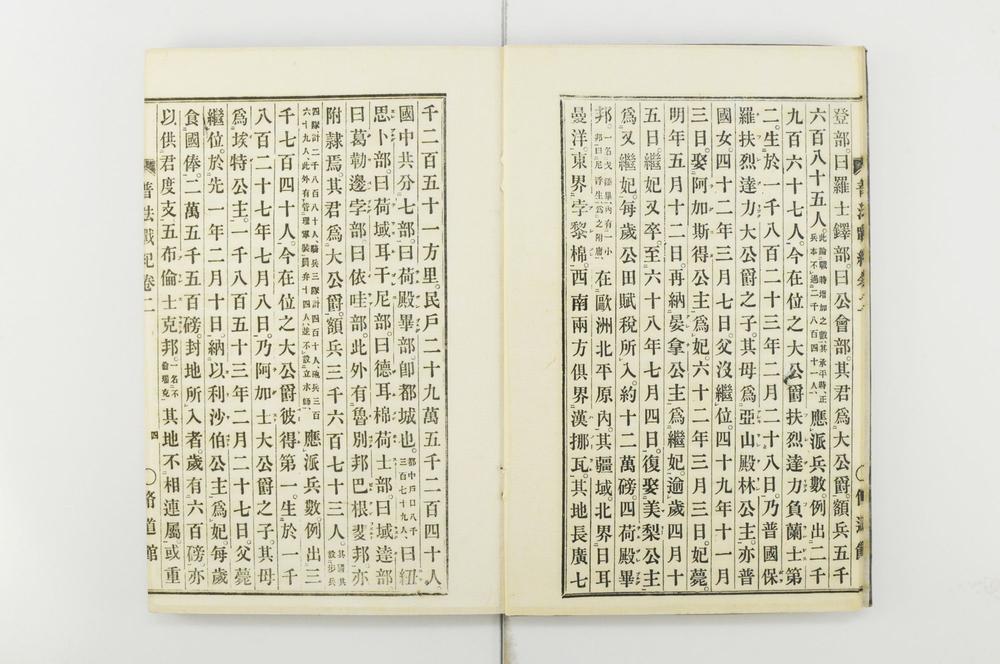 登部。曰羅士鐸部。曰公會部。其君爲大公爵。額兵五千
六百八十五人。此論戰時增加之數、其承平時正兵本不過二千八百四十一人、應派兵數。例出二千
九百六十七人。今在位之大公爵扶烈達力負蘭士第
二。生於一千八百二十三年二月二十八日。乃普國保
羅扶烈達力大公爵之子。其母爲亞山殿林公主。亦普
國女。四十二年三月七日。父沒繼位。四十九年十一月
三日。娶阿加斯得公主爲妃。六十二年三月三日。妃薨。
明年五月十二日。再納晏拿公主爲繼妃。逾歲四月十
五日。繼妃又卒。至六十八年七月四日。復娶美梨公主
爲又繼妃。每歲公田賦稅所入。約十二萬磅。四荷殿畢
邦。在歐洲北平原內。其疆域。北界日耳
曼洋。東界孛黎棉。西南兩方俱界漢挪瓦。其地長廣七
普法戰紀卷二
千二百五十一方里。民戶二十九萬五千二百四十人
國中共分七部。曰荷殿畢部。卽都城也。都中戶口八千三百七十九人、曰紐
思卜部。曰荷域耳干尼部。曰德耳棉荷士部。曰域達部
曰葛勒邊孛部。曰依哇部。此外有魯別邦巴根斐邦。亦
附隷焉。其君爲大公爵。額兵三千六百七十三人。其國共設步兵
四隊計二千八百八十人、騎兵三隊計四百十人、砲兵三百六十九人、此外有管理軍裝員弁十四人、並不設立水師、應派兵數例出三
千七百四十人。今在位之大公爵彼得第一。生於一千
八百二十七年七月八日。乃阿加士大公爵之子。其母
爲埃特公主。一千八百五十三年二月二十七日。父薨
繼位。於先一年二月十日。納以利沙伯公主爲妃。每歲
食國俸。二萬五千五百磅。封地所入者。歲有六百磅。亦
以供君度支。五布倫士克邦。其地不相連屬。或重
普法戰紀卷二
四